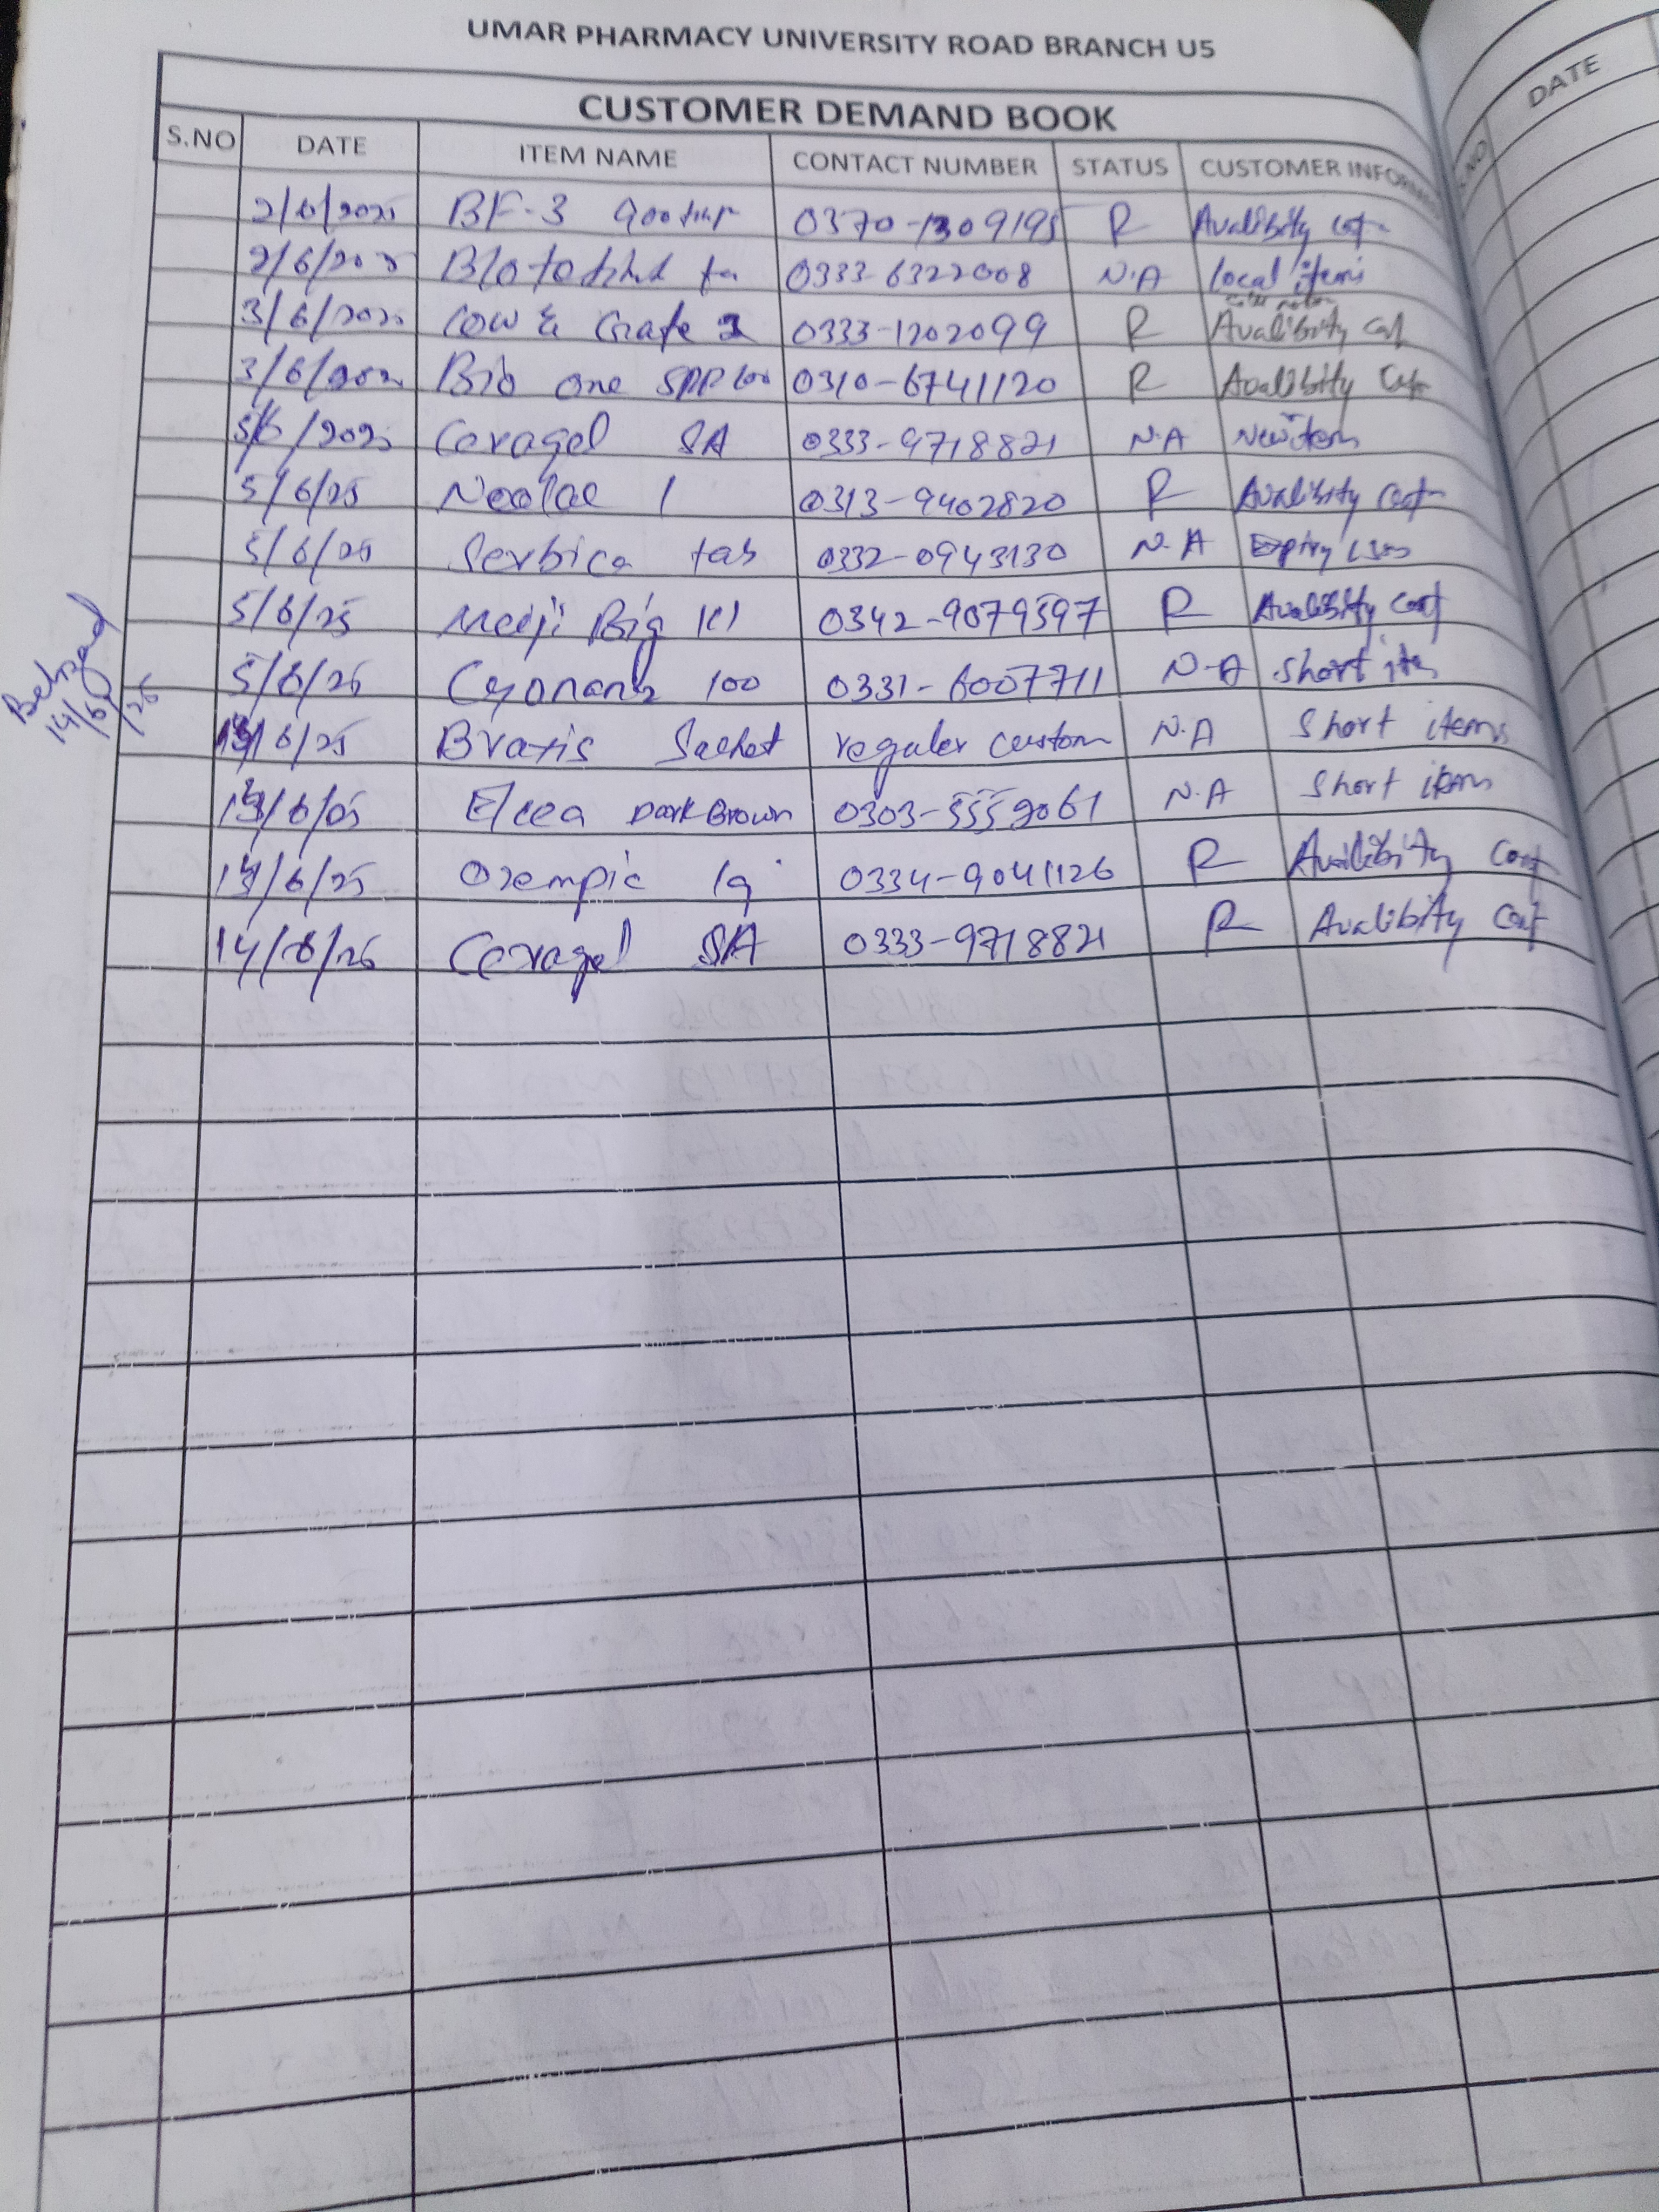 UMAR PHARMACY UNIVERSITY ROAD BRANCH U5
CUSTOMER DEMAND BOOK
S.NO DATE ITEM NAME CONTACT NUMBER STATUS CUSTOMER INFORM
2/6/2025 BF-3 0370-1309195 R Avalibity
2/6/202 0333-6322008 N.A local items
3/6/202 Cow & Grate 0333-1202099 R Avalibity
3/6/202 Bio one 0310-6741120 R Avalibity
5/6/2025 Ceragel SA 0333-9718821 N.A New item
5/6/25 1 0313-9402820 R Avalibity Conf
5/6/25 Serbica tab 0332-0943130 N.A Expiry
5/6/25 Meiji Big 0342-9079597 R Avalibity Conf
5/6/25 100 0331-6007711 N-A Short
6/25 Sachet reguler custom N.A Short items
Dark Brown 0303-5559061 N.A Short item
6/25 Ozempic 1g 0334-9041126 R Availibity Conf
14/6/25 Ceragel SA 0333-9718821 R Avalibity Conf
Behzad
14/6/25
DATE